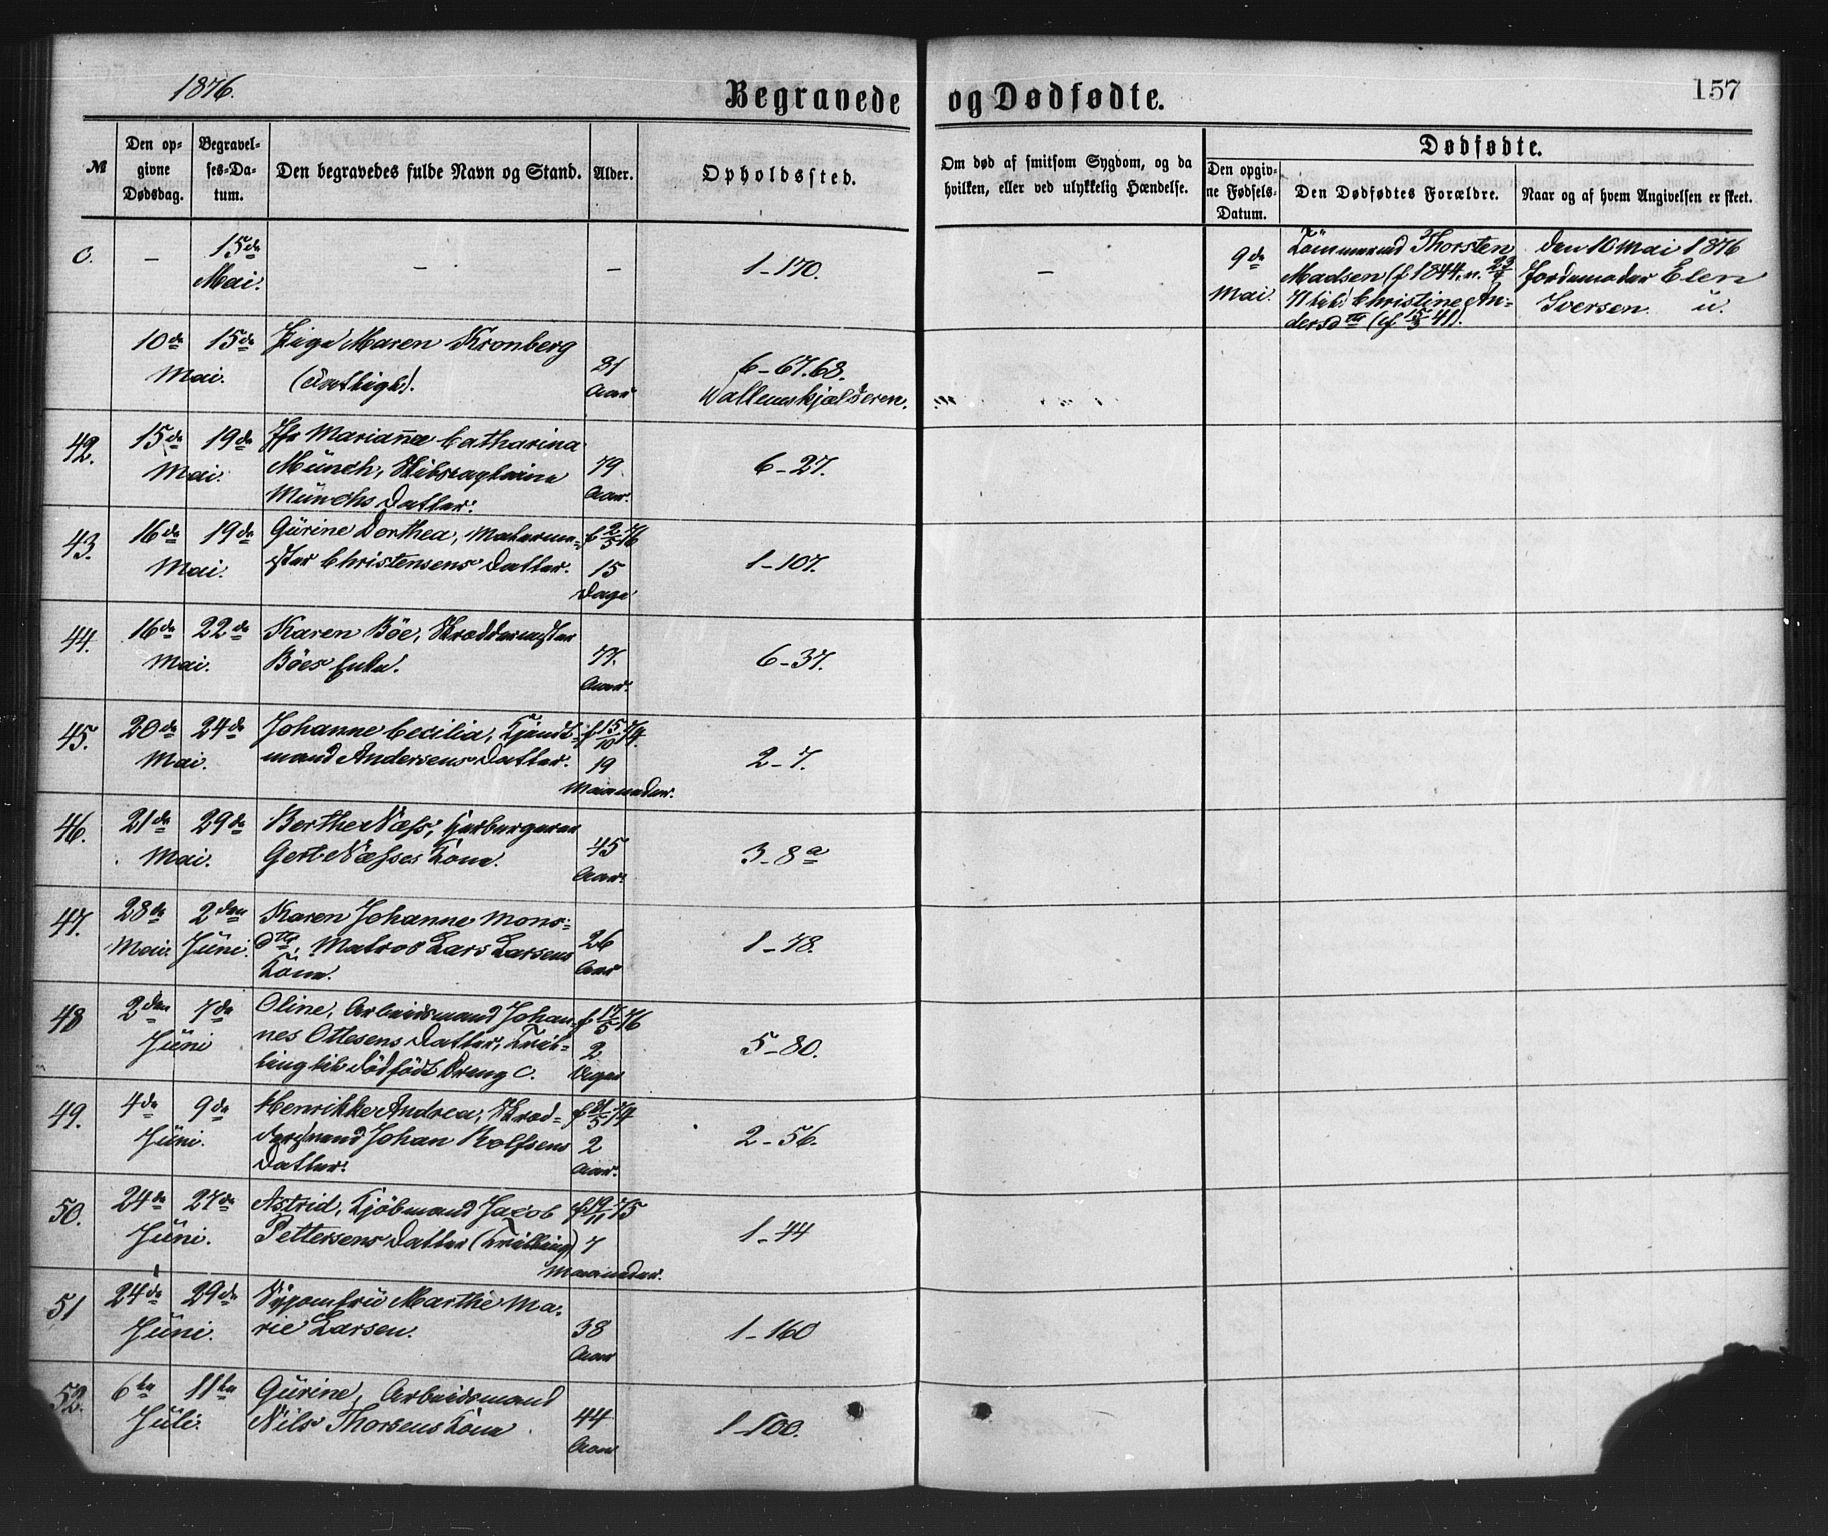 1876.
Begravede og Dødfødte.
157
№
Den opgivne Dødsdag.
Begravelses-Datum.
Den begravedes fulde Navn og Stand.
Alder.
Opholdssted.
Om død af smitsom Sygdom, og da hvilken, eller ved ulykkelig Hændelse.
Dødfødte.
Den opgivne Fødsels-Datum.
Den Dødfødtes Forældre.
Naar og af hvem Angivelsen er skeet.
C. – 15de – – 1–170. – 9de Tömmermand Thorsten den 10 Mai 1876
Mai. Mai. Madsen (f 1844, n. Jordemoder Elen
Christine An- Iversen u.
dersdtr (f. 15/3 41).
10de 15de Pige Maren Kronberg 21 6–67.68.
Mai. Aar Wallemskjælderen.
42. 15de 19de Jfr Marianne Catharina 79 6–27.
Mai. Münch, Aar.
Münchs Datter.
43. 16de 19de Gürine Dorthea, f 2/5 76 1–107.
Mai. Christensens Datter. 15
Dage
44. 16de 22de Karen Böe, Skræddermester 77. 6–37.
Mai. Böes Enke. Aar.
45. 20de 24de Johanne Cecilia, f 15/10 74. 2–7.
Mai. mand Andersens Datter. 19
Maaneder.
46. 21de 29de Berthe Næss, 45 3–8a
Mai. Gert Næsses Kone. Aar.
47. 28de 2den Karen Johanne Mons= 26 1–78.
Mai. Jüni. dtr, Matros Lars Larsens Aar
Kone.
48 2den 7de Oline, Arbeidsmand Johan- f 17/5 76 5–80.
Jüni nes Ottesens Datter, Tvil= 2
ling til dödfödt Dreng C. Uger
49. 4de 9de Henrikke Andrea, Skræd= f 31/5 74 2–56.
Jüni. Johan Rolfsens 2
Datter. Aar.
50. 24de 27de Astrid, Kjöbmand Jacob f 19/11 75 1–44
Jüni. Pettersens Datter (Trilling) 7
Maaneder.
51 24de 29de Sypomfrü Marthe Ma- 38 1–160
Jüni. rie Larsen. Aar
52. 6te 11te Gürine, Arbeidsmand 44 1–100.
Jüli. Nils Thorsens Kone Aar